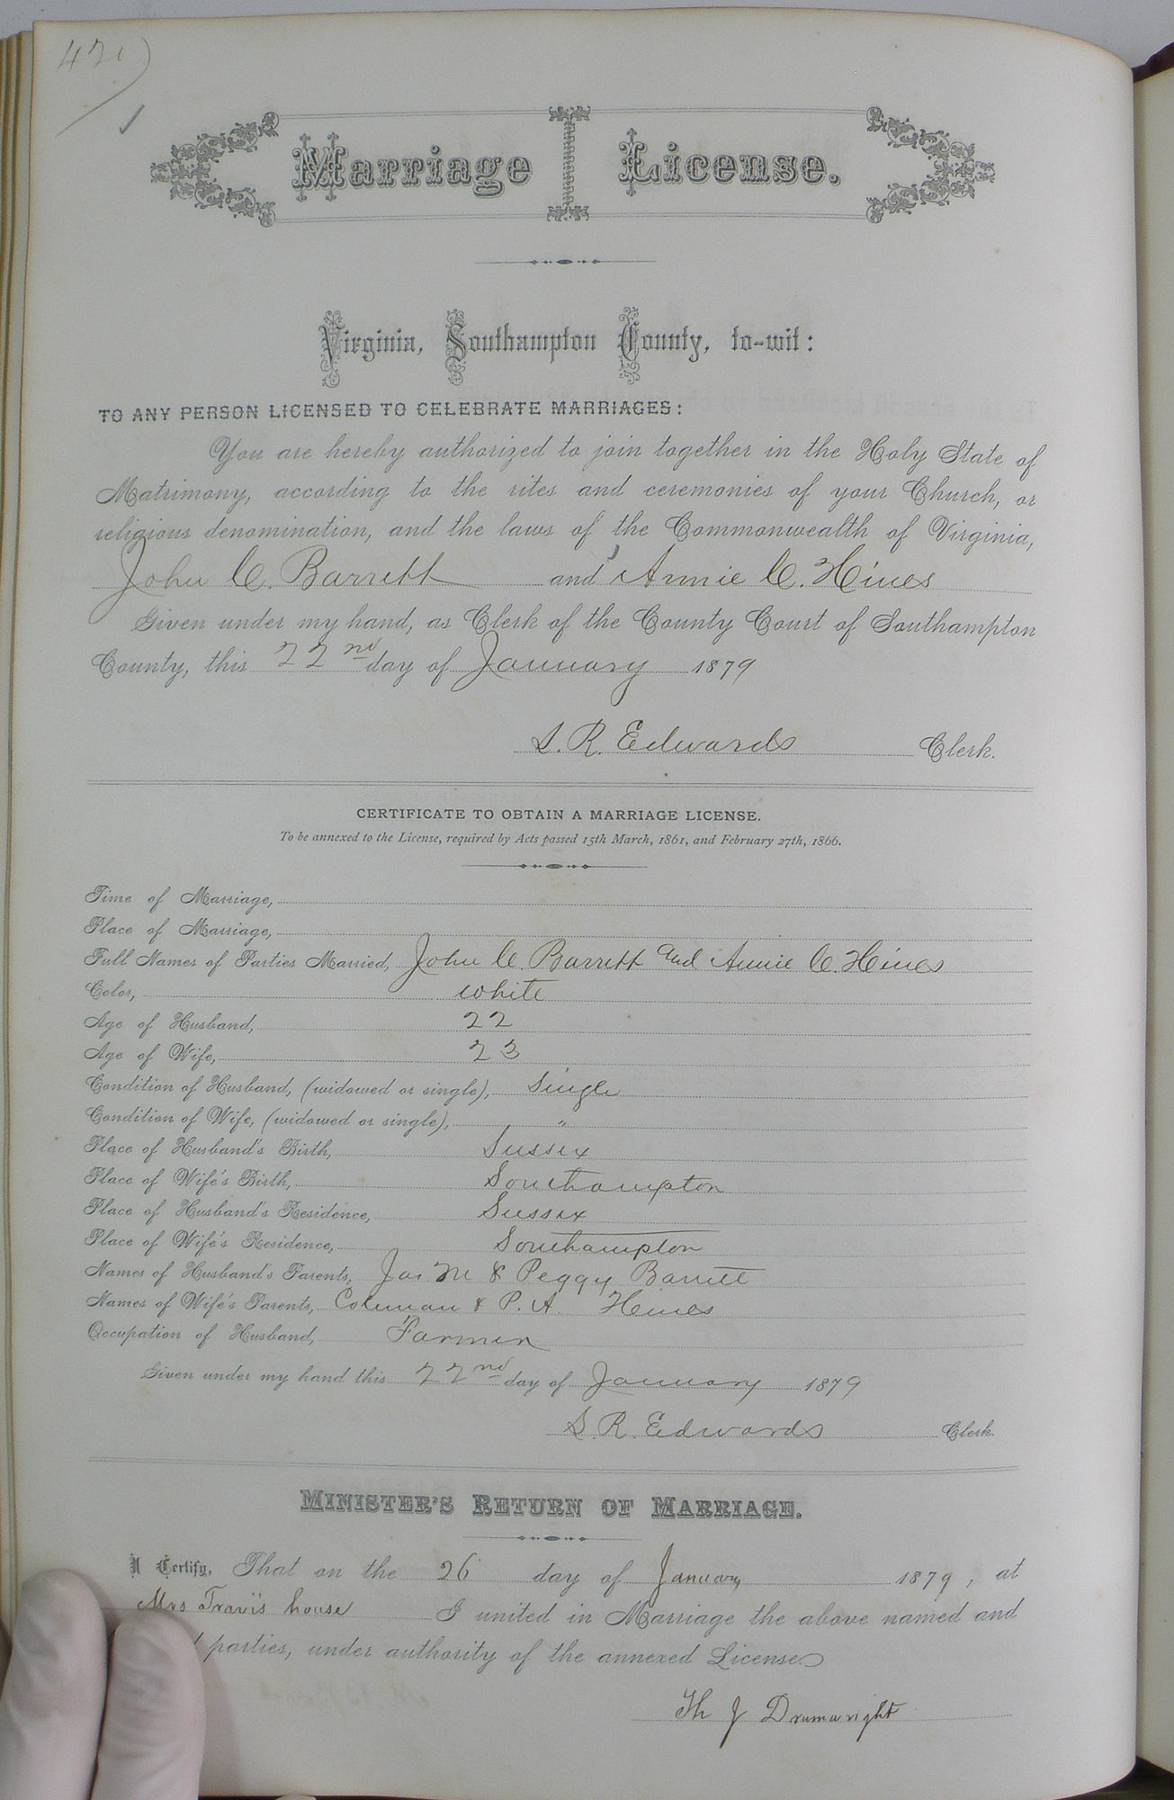 Marriage License.
Virginia, Southampton County, to-wit:
TO ANY PERSON LICENSED TO CELEBRATE MARRIAGES:
You are hereby authorized to join together in the Holy State of
Matrimony, according to the rites and ceremonies of your Church, or
religious denomination, and the laws of the Commonwealth of Virginia,
John C. Barrett and Annie C. Hines
Given under my hand, as Clerk of the County Court of Southampton
County, this 22nd day of January 1879
S. R. Edwards Clerk.
CERTIFICATE TO OBTAIN A MARRIAGE LICENSE.
To be annexed to the License, required by Acts passed 15th March, 1861, and February 27th, 1866.
Time of Marriage,
Place of Marriage,
Full Names of Parties Married, John C. Barrett and Annie C. Hines
Color, white
Age of Husband, 22
Age of Wife, 23
Condition of Husband, (widowed or single), Single
Condition of Wife, (widowed or single), "
Place of Husband's Birth, Sussex
Place of Wife's Birth, Southampton
Place of Husband's Residence, Sussex
Place of Wife's Residence, Southampton
Names of Husband's Parents, Jas M & Peggy Barrett
Names of Wife's Parents, Coleman & P. A. Hines
Occupation of Husband, Farmer
Given under my hand this 22nd day of January 1879
S. R. Edwards Clerk.
MINISTER'S RETURN OF MARRIAGE.
I Certify, That on the 26 day of January 1879, at
Mrs Travis house I united in Marriage the above named and
parties, under authority of the annexed License.
Th J Drumwright